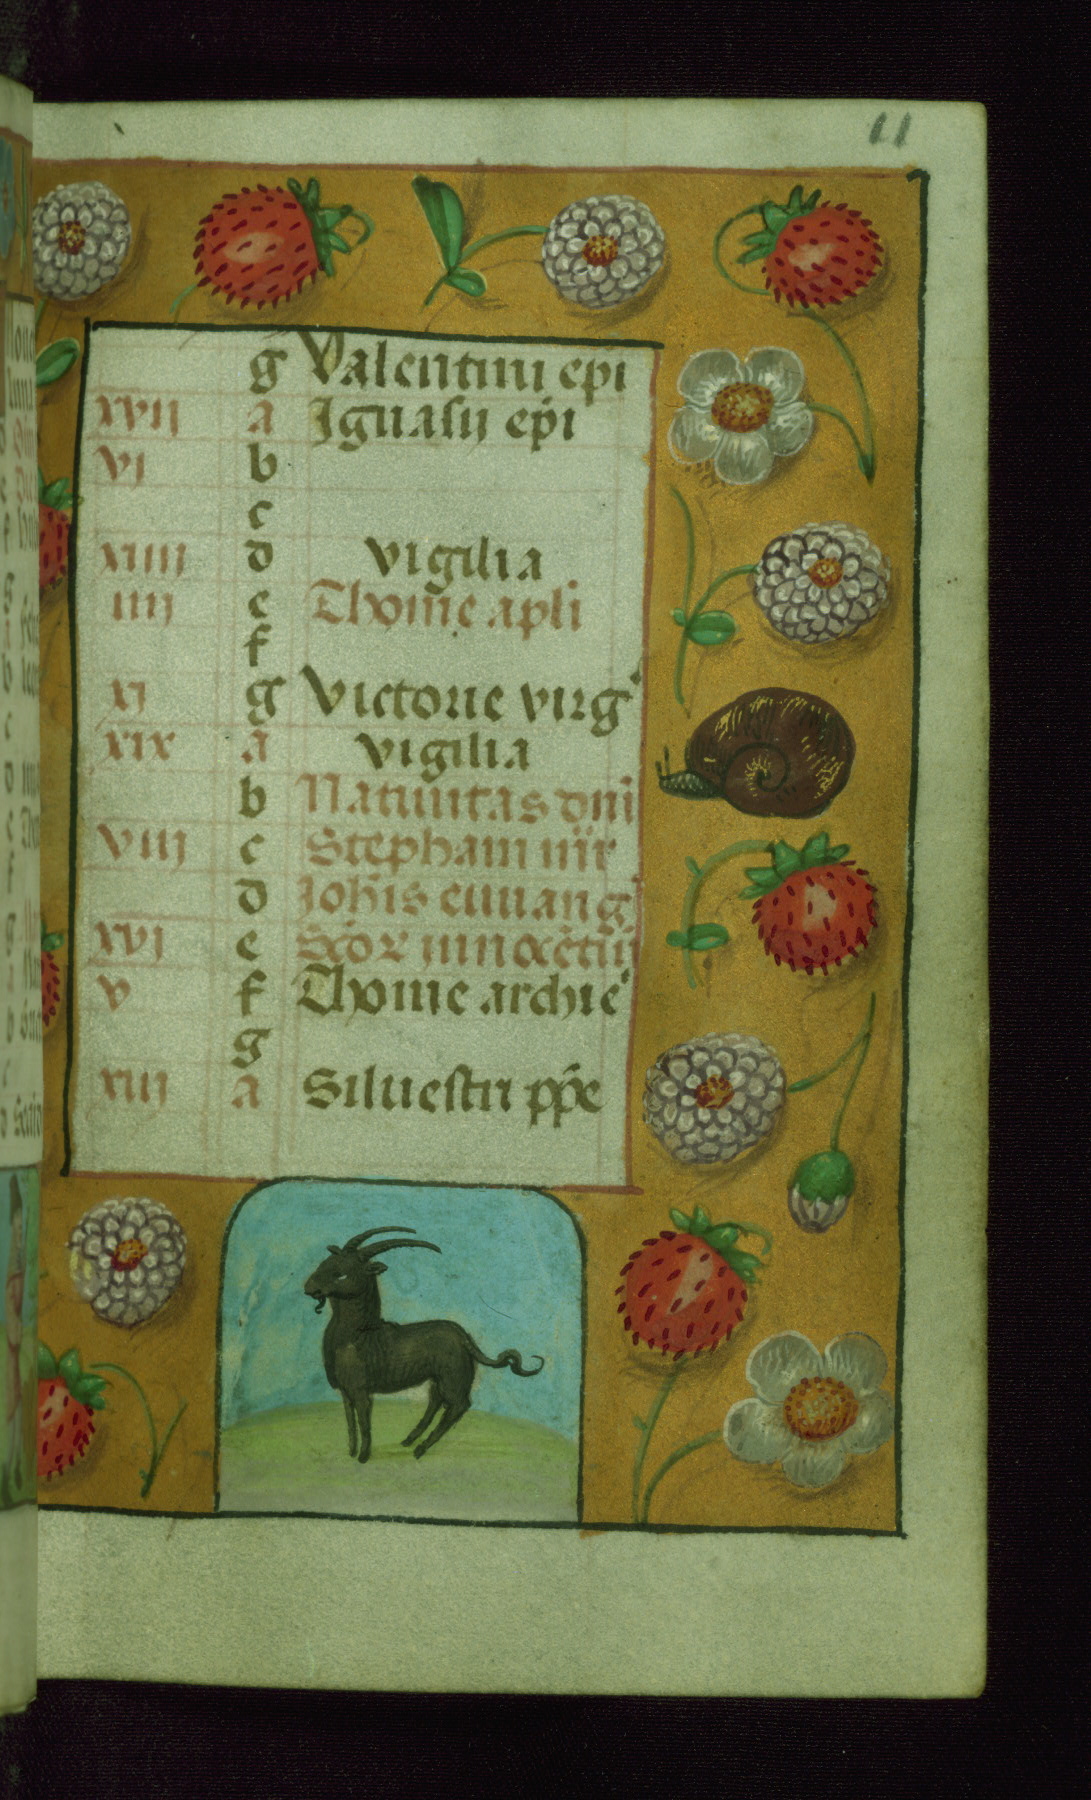 11
g Valentini epi
xvii a Ignasii epi
vi b
c
xiiii d vigilia
iiii e Thome apli
f
xi g Victorie virg'
xix a vigilia
b Natiuitas dni
viii c Stephani mr
d Johis euuang'
xvi e Scor innocetiu
v f Thome archie'
g
xiii a Siluestri ppe